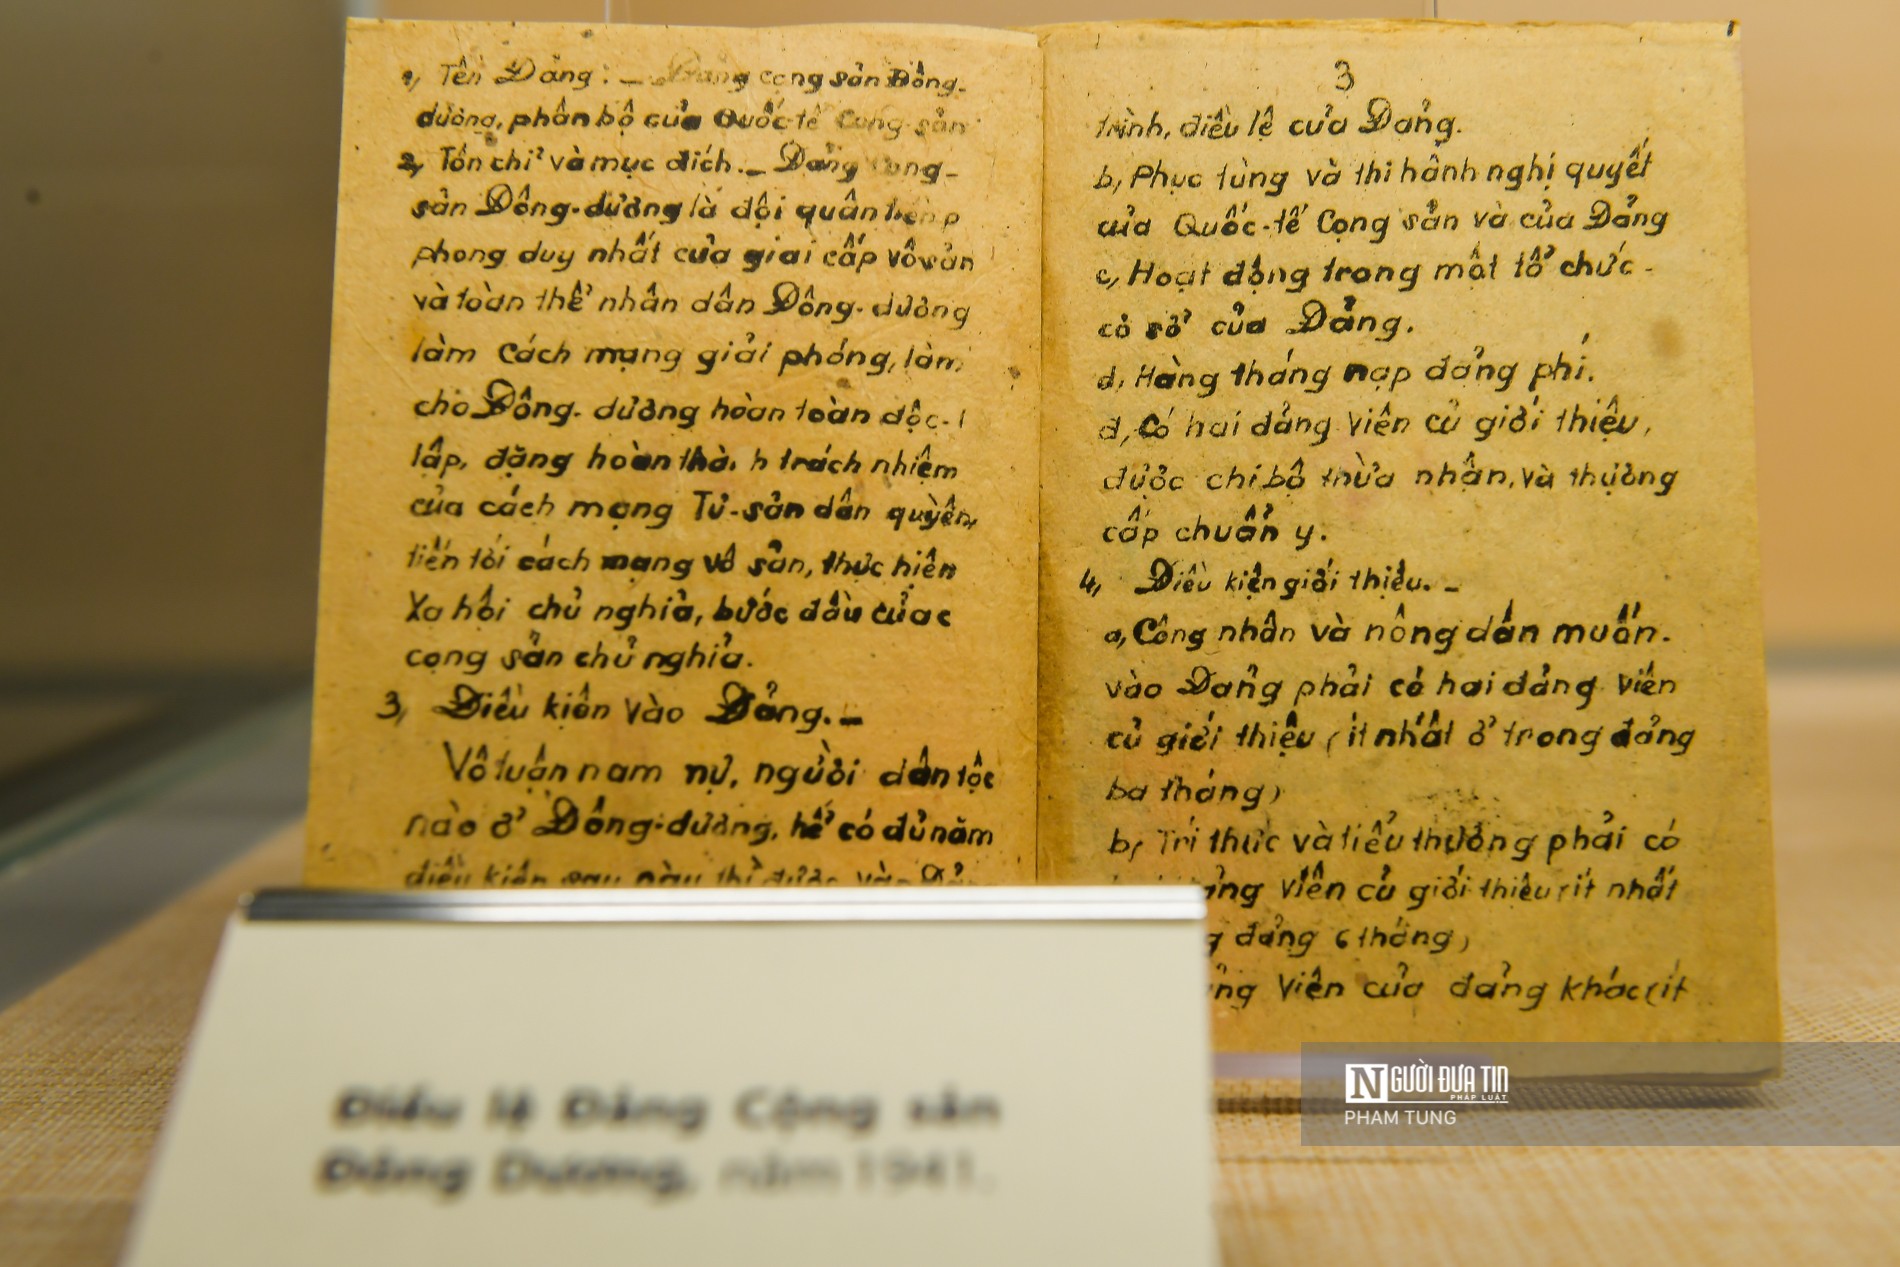 1, Tên Đảng: _ Đảng cọng sản Đông-
dương, phân bộ của Quốc-tế Cọng-sản
2, Tôn chỉ và mục đích._ Đảng Cọng-
sản Đông-dương là đội quân tiền p
phong duy nhất của giai cấp vô sản
và toàn thể nhân dân Đông-dương
làm cách mạng giải phóng, làm
cho Đông-dương hoàn toàn độc-l
lập, đặng hoàn thành trách nhiệm
của cách mạng Tư-sản dân quyền,
tiến tới cách mạng vô sản, thực hiện
Xa hội chủ nghỉa, bước đầu của c
cọng sản chủ nghỉa.
3, Điều kiện vào Đảng._
Vô luận nam nự, người dân tộc
nào ở Đông-dương, hể có đủ năm
điều kiện sau này thì được vào Đảng
3
trình, điều lệ của Đảng.
b, Phục tùng và thi hành nghị quyết
của Quốc-tế Cọng sản và của Đảng
c, Hoạt động trong một tổ chức-
cơ sở của Đảng.
d, Hàng tháng nạp đảng phí.
đ, Có hai đảng viên củ giới thiệu,
được chi bộ thừa nhận, và thượng
cấp chuẩn y.
4, Điều kiện giới thiệu._
a, Công nhân và nông dân muốn.
vào Đảng phải có hai đảng viên
củ giới thiệu (ít nhất ở trong đảng
ba tháng)
b, Trí thức và tiểu thương phải có
đảng viên củ giới thiệu (ít nhất
đảng 6 tháng)
viên của đảng khác (ít
Điều lệ Đảng Cộng sản
Đông Dương, năm 1941.
NGƯỜI ĐƯA TIN
PHÁP LUẬT
PHAM TUNG